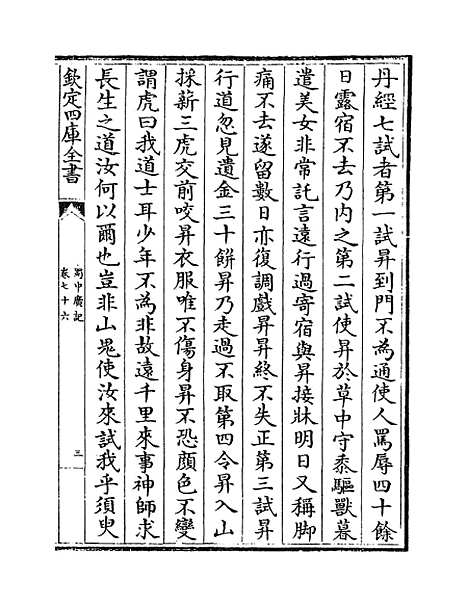 丹經七試者第一試昇到門不為通使人罵辱四十餘
日露宿不去乃内之第二試使昇於草中守黍驅獸暮
遣美女非常託言遠行過寄宿與昇接牀明日又稱脚
痛不去遂留數日亦復調戲昇昇終不失正第三試昇
行道忽見遺金三十餅昇乃走過不取第四令昇入山
採薪三虎交前咬昇衣服唯不傷身昇不恐顔色不變
謂虎曰我道士耳少年不為非故遠千里來事神師求
長生之道汝何以爾也豈非山鬼使汝來試我乎須臾
欽定四庫全書
蜀中廣記
卷七十六
三